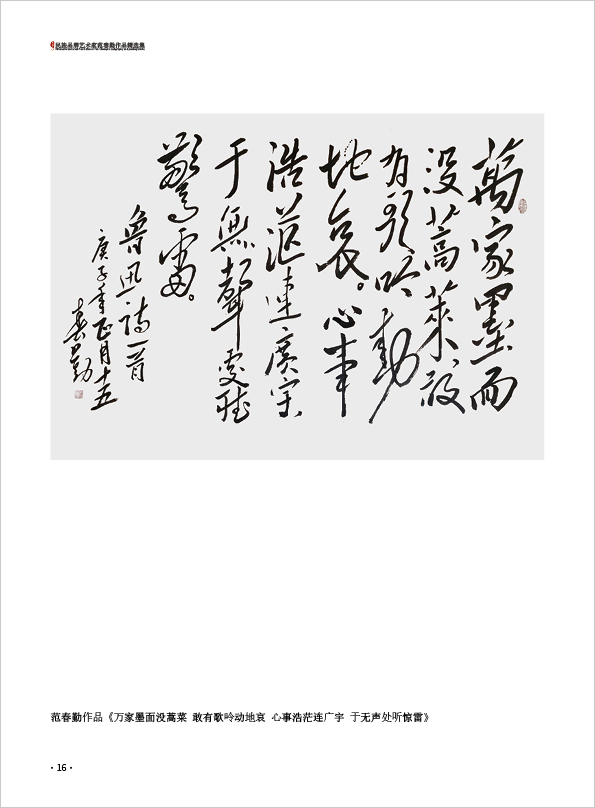 民族品牌艺术家范春勤作品精选集
萬家墨面
没蒿萊敢
有歌吟動
地哀。心事
浩茫連廣宇
于無聲處聴
驚雷。
魯迅詩一首
庚子年正月十五
春勤
范春勤作品《万家墨面没蒿菜 敢有歌呤动地哀 心事浩茫连广宇 于无声处听惊雷》
· 16 ·